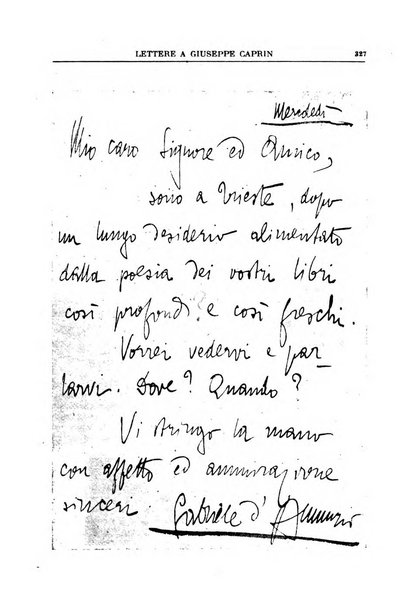 LETTERE A GIUSEPPE CAPRIN 327
Mercoledì
Mio caro Signore ed Amico,
sono a Trieste, dopo
un lungo desiderio alimentato
dalla poesia dei vostri libri
così profondi e così freschi.
Vorrei vedervi e par-
larvi. Dove? Quando?
Vi stringo la mano
con affetto ed ammirazione
sinceri. Gabriele d'Annunzio